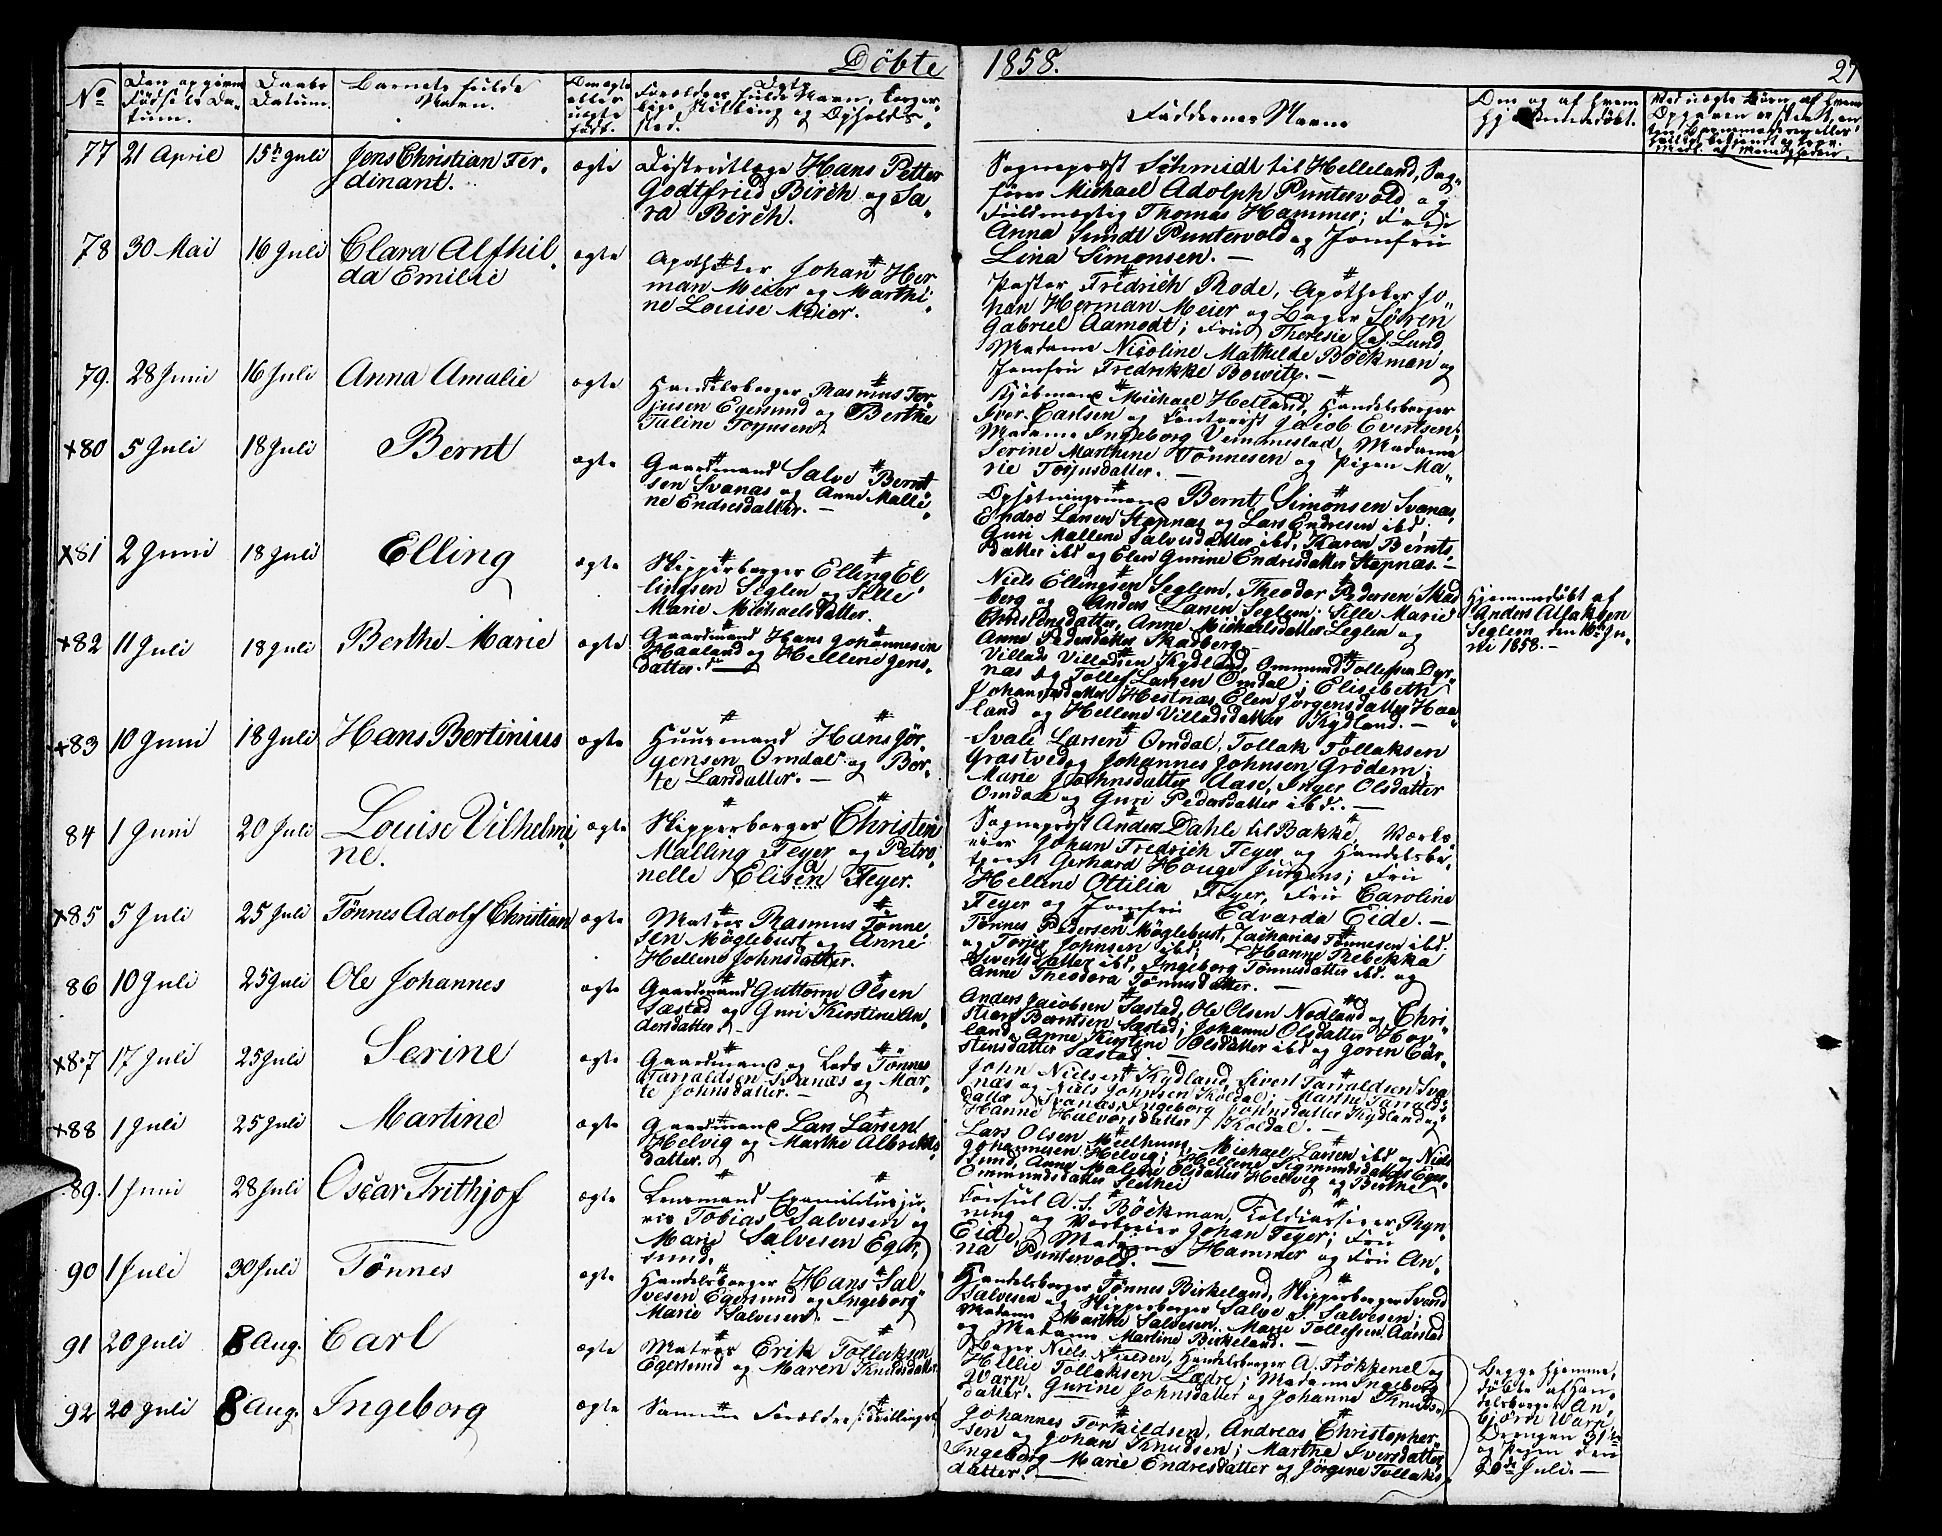 Döbte 1858.
27
No
Den opgivne Fødsels Datum.
Daabs Datum.
Barnets fulde Navn.
Om ægte eller uægte født.
Forældres fulde Navn, Borgerlige Stilling og Opholdssted.
Faddernes Navne
Om og af hvem hjemmedøbt.
77 21 April 15de Juli Jens Christian Fer-
dinant.
ægte Districtslæge Hans Petter
Godtfried Birch og Sa,
ra Birch.
Sognepræst Schmidt til Helleland, Sag-
fører Michael Adolph Puntervold og
Fuldmægtig Thomas Hammer; Frue
Anna Smidt Puntervold og Jomfru
Lina Simonsen. —
78 30 Mai 16 Juli Clara Alfhil,
da Emilie
ægte Apotheker Johan Her-
man Meier og Marthi,
ne Louise Meier.
Pastor Fredrich Rode, Apotheker Jo,
han Herman Meier og Bager Sören
Gabriel Aamodt; Frue Theresie Lund
Madame Nicoline Mathilde Böckman og
Jomfru Fredrikke Bowitz. —
79. 28 Juni 16 Juli Anna Amalie
ægte Handelsborger Rasmus Tor-
jusen Egersund og Berthe
Taline Torjusen.
Kjöbmand Michael Helland, Handelsborger
Iver Carlsen og Jacob Evertsen;
Madame Ingeborg Vemmestad, Madame
Serine Marthine Tönnesen og Pigen Ma,
rie Torjusdatter. —
+80 5 Juli 18 Juli Bernt
ægte Gaardmand Salve Bernt
sen Svanæs og Anne Malli,
ne Endresdatter. —
Opsetningsmand Bernt Simonsen Svanæs,
Endre Larsen Stapnæs og Lars Endresen ibd;
Guri Mallene Salvesdatter ibd, Karen Bernts-
datter ibd og Elen Gurine Endresdatter Stapnæs. —
+81 2 Juni 18 Juli Elling
ægte Skipperborger Elling El
lingsen Seglem og Sille
Marie Michaelsdatter.
Niels Ellingsen Seglem, Theodor Pedersen Skad
berg og Anders Larsen Seglem; Sille Marie
Christensdatter, Anne Michaelsdatter Seglem og
Anne Pedersdatter Skadberg.
Hjemmedöbt af
Anders Aslaksen
Seglem den 10de Ju-
ni 1858. —
+82 11 Juli 18 Juli Berthe Marie
ægte Gaardmand Hans Johannesen
Haaland og Hellene Jens,
datter.
Villads Villadsen Kydland, Ommund Tollefsen Dyr-
næs og Tollef Larsen Omdal; Elisabeth
Johannesdatter Hestnæs, Elen Jörgensdatter Haa-
land og Hellene Villadsdatter Kydland. —
+83 10 Juni 18 Juli Hans Bertinius
ægte Huusmand Hans Jör,
gensen Omdal og Ber,
te Larsdatter. —
Svale Larsen Omdal, Tollak Tollaksen
Grastved og Johannes Johnsen Grödem;
Marie Johnsdatter Aase, Inger Olsdatter
Omdal og Guri Pedersdatter ibd. —
84 1 Juni 20 Juli Louise Vilhelmi,
ne.
ægte Skipperborger Christen
Malling Feyer og Petro,
nelle Elisea Feyer.
Sognepræst Anders Dahle til Bakke, Værks-
eier Johan Fredrich Feyer og Handelsbe-
tjent Gerhard Houge Jürgens; Frue
Hellene Ottilia Feyer, Frue Caroline
Feyer og Jomfru Edvarda Eide. —
+85 5 Juli 25 Juli Tönnes Adolf Christian
ægte Matros Rasmus Tönne,
sen Möglebust og Anne
Hellene Johnsdatter.
Tönnes Pedersen Möglebust, Zacharias Tönnesen ibd.
og Torjer Johnsen ibd; Hanne Rebekka
Sivertsdatter ibd, Ingeborg Tönnesdatter ibd. og
Anne Theodora Tönnesdatter. —
86 10 Juli 25 Juli Ole Johannes
ægte Gaardmand Guttorm Olsen
Sæstad og Guri Kirstine An,
dersdatter. —
Anders Jacobsen Sæstad, Ole Olsen Nodland og Chri-
stian Berntsen Sæstad; Johanne Olsdatter Hov-
land, Anne Kirstine Olsdatter ibd og Goren Car-
stensdatter Sæstad. —
+87 17 Juli 25 Juli Serine
ægte Gaardmand og Lods Tönnes
Tarraldsen Svanæs og Mar-
te Johnsdatter. —
John Nielsen Kydland, Sivert Tarraldsen Sva
næs og Niels Johnsen Koldal; Marthe Tarralds-
datter Svanæs, Ingeborg Johnsdatter Kydland og
Hanne Halvorsdatter Koldal. —
+88 1 Juli 25 Juli Martine
ægte Gaardmand Lars Larsen
Helvig og Marthe Albrekts,
datter.
Lars Olsen Mælhuus, Michael Larsen ibd og Niels
Johannesen Helvig; Hellene Sigmundsdatter Eger-
sund, Anne Malene Olsdatter Helvig og Berthe
Ommundsdatter Slethei
89. 1 Juni 28 Juli Oscar Frithjof
ægte Lensmand Examinitusju,
ris Tobias Salvesen og
Marie Salvesen Eger,
sund.
Konsul A. S. Böckman, Toldkasserer Ryn-
ning og Værkseier Johan Feyer; Frue
Eide, Madame Hammer og Frue An-
na Puntervold. —
90 1 Juli 30 Juli Tönnes
ægte Handelsborger Hans Sal
vesen Egersund og Ingeborg
Marie Salvesen. —
Handelsborger Tönnes Birkeland, Skipperborger Svend
Salvesen og Skipperborger Salve S. Salvesen;
Madame Marthe Salvesen, Marie Tollefsen Aarstad
og Madame Martine Birkeland. —
91 20 Juli 8 Aug. Carl
ægte Matros Erik Tollaksen
Egersund og Maren Knudsdatter
Bager Niels Nielsen, Handelsborger A. Frökkenel og
Hellie Tollaksen Lædre; Madame Ingeborg
Warp, Gurine Johnsdatter og Johanne Knuds-
datter.
92 20 Juli 8 Aug. Ingeborg
ægte Samme Forældre /:Tvillinger:/
Johannes Torkildsen, Andreas Christopher-
sen og Johan Knudsen; Marthe Iversdatter,
Ingeborg Marie Endresdatter og Jörgine Tollaks-
datter. —
Begge hjemme,
döbte af Han,
delsborger An,
björn Warp,
Drengen 31te
og Pigen den
20de Juli. —